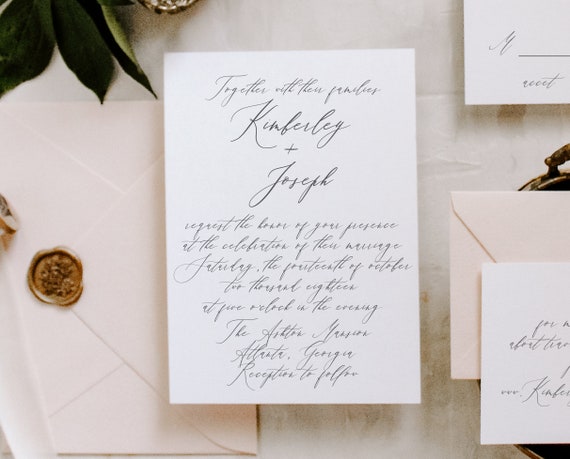 Together with their families
Kimberley
+
Joseph
request the honor of your presence
at the celebration of their marriage
Saturday, the fourteenth of october
two thousand eighteen
at five o'clock in the evening
The Ashton Mansion
Atlanta, Georgia
Reception to follow
M
accept
for m
about tra
www.Kimberl